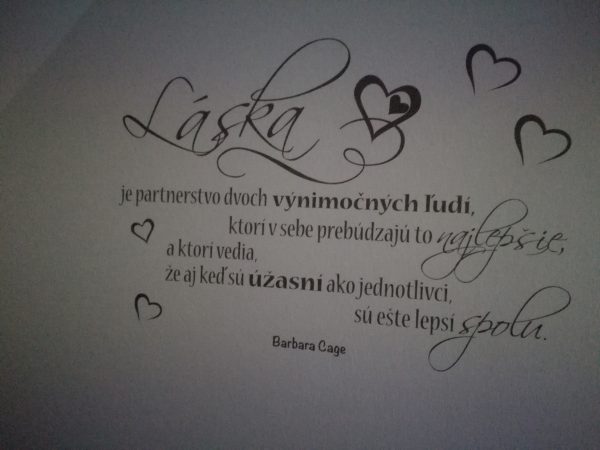 Láska
je partnerstvo dvoch výnimočných ľudí,
ktorí v sebe prebúdzajú to najlepšie,
a ktorí vedia,
že aj keď sú úžasní ako jednotlivci,
sú ešte lepší spolu.
Barbara Cage